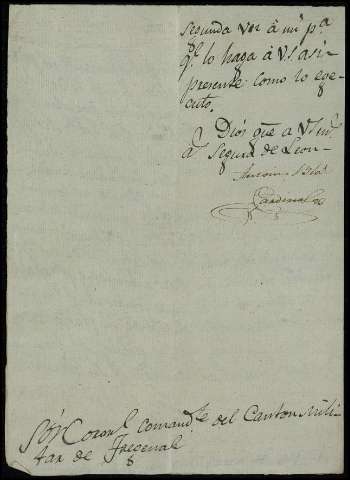 segunda vez à mi pª
qᵉ lo haga à V.S. asi
presente como lo ege-
cuto.
Dios gue a V.S. mˢ
aˢ Segura de Leon
Antonio
Cardenas
Sōr Coronl Comandte del Canton Mili-
tar de Fregenal